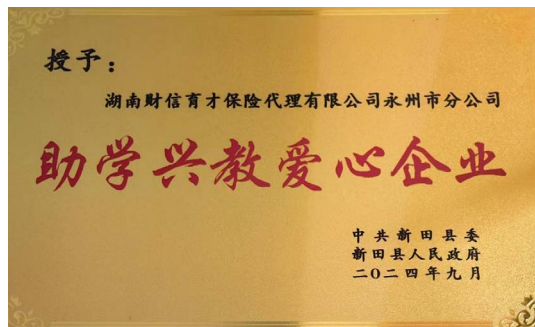 授予：
湖南财信育才保险代理有限公司永州市分公司
助学兴教爱心企业
中共新田县委
新田县人民政府
二〇二四年九月